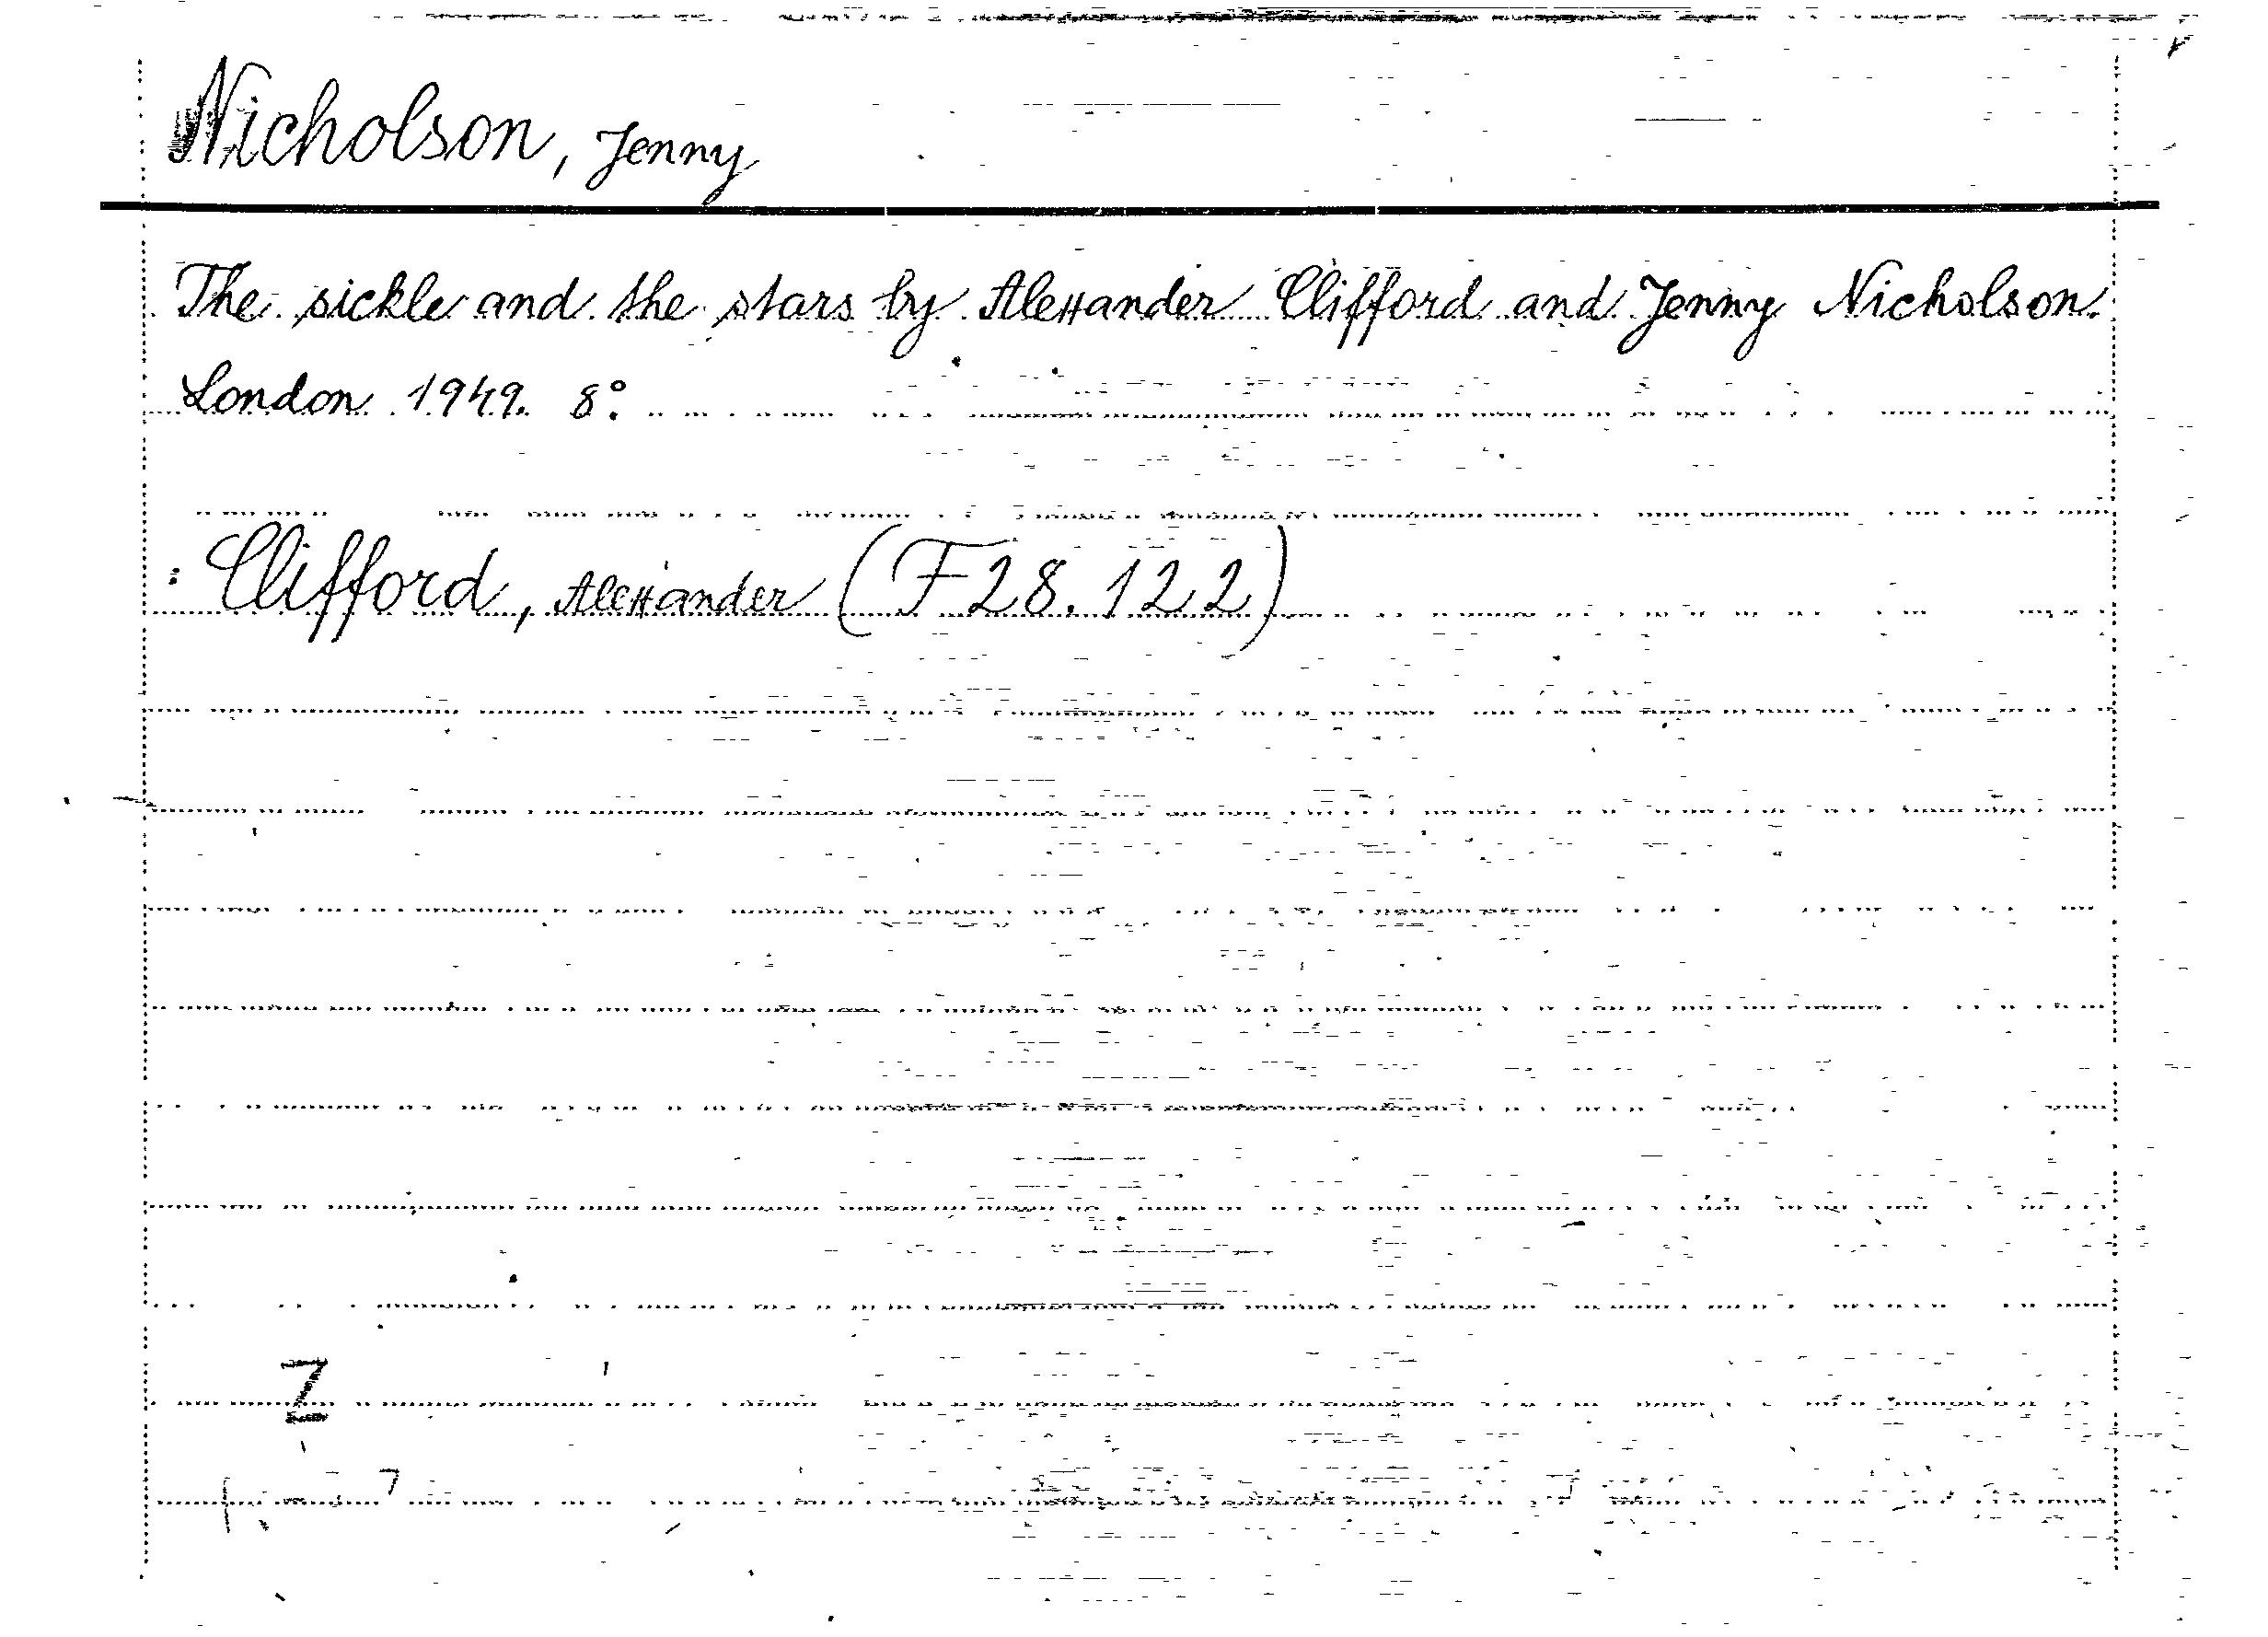 Nicholson, Jenny
The sickle and the stars by Alexander Clifford and Jenny Nicholson.
London 1949. 8°.
: Clifford, Alexander (F 28.122)
Z